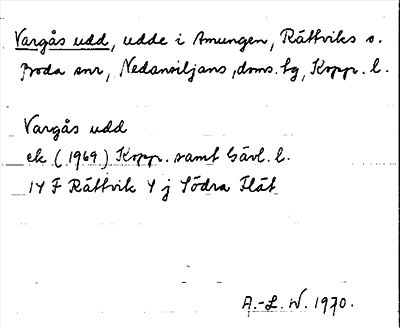 Vargås udd, udde i Amungen, Rättviks o.
Boda snr, Nedansiljans, doms. tg, Kopp. l.
Vargås udd
ek (1969) Kopp. samt Gävl. l.
14 F Rättvik 4 j Södra Flät
A.-L. W. 1970.